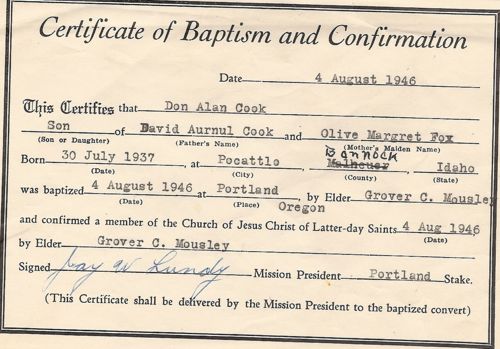 Certificate of Baptism and Confirmation
Date 4 August 1946
This Certifies that Don Alan Cook
Son of David Aurnul Cook and Olive Margret Fox
(Son or Daughter) (Father's Name) (Mother's Maiden Name)
Bannock
Born 30 July 1937, at Pocattlo, Malheuer, Idaho
(Date) (City) (County) (State)
was baptized 4 August 1946 at Portland, by Elder Grover C. Mousley
(Date) (Place) Oregon
and confirmed a member of the Church of Jesus Christ of Latter-day Saints 4 Aug 1946
(Date)
by Elder Grover C. Mousley
Signed Jay W Lundy Mission President Portland Stake.
(This Certificate shall be delivered by the Mission President to the baptized convert)